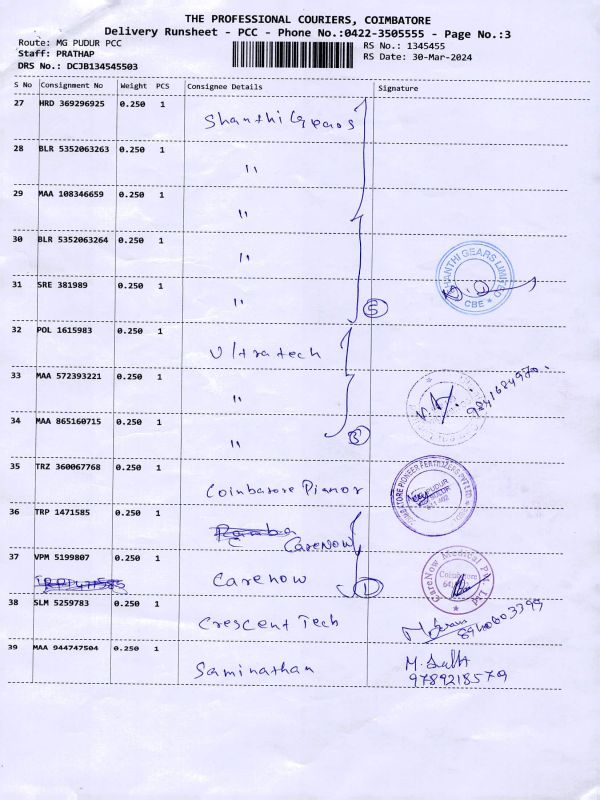 THE PROFESSIONAL COURIERS, COIMBATORE
Delivery Runsheet - PCC - Phone No.:0422-3505555 - Page No.:3
Route: MG PUDUR PCC
RS No.: 1345455
Staff: PRATHAP
RS Date: 30-Mar-2024
DRS No.: DCJB134545503
S No Consignment No Weight PCS Consignee Details Signature
27 HRD 369296925 0.250 1 Shanthi Gears
28 BLR 5352063263 0.250 1 "
29 MAA 108346659 0.250 1 "
30 BLR 5352063264 0.250 1 "
SHANTHI GEARS LIMITED CBE
31 SRE 381989 0.250 1 "
5
32 POL 1615983 0.250 1 Ultratech
33 MAA 572393221 0.250 1 "
34 MAA 865160715 0.250 1 "
3
35 TRZ 360067768 0.250 1 Coimbatore Pianor
COIMBATORE PIONEER FERTILIZERS PVT LTD
36 TRP 1471585 0.250 1 CareNow
37 VPM 5199807 0.250 1 Carenow
1
CareNow Medical Pvt Ltd
Coimbatore
38 SLM 5259783 0.250 1 Crescent Tech
39 MAA 944747504 0.250 1 Saminathan
9789218579